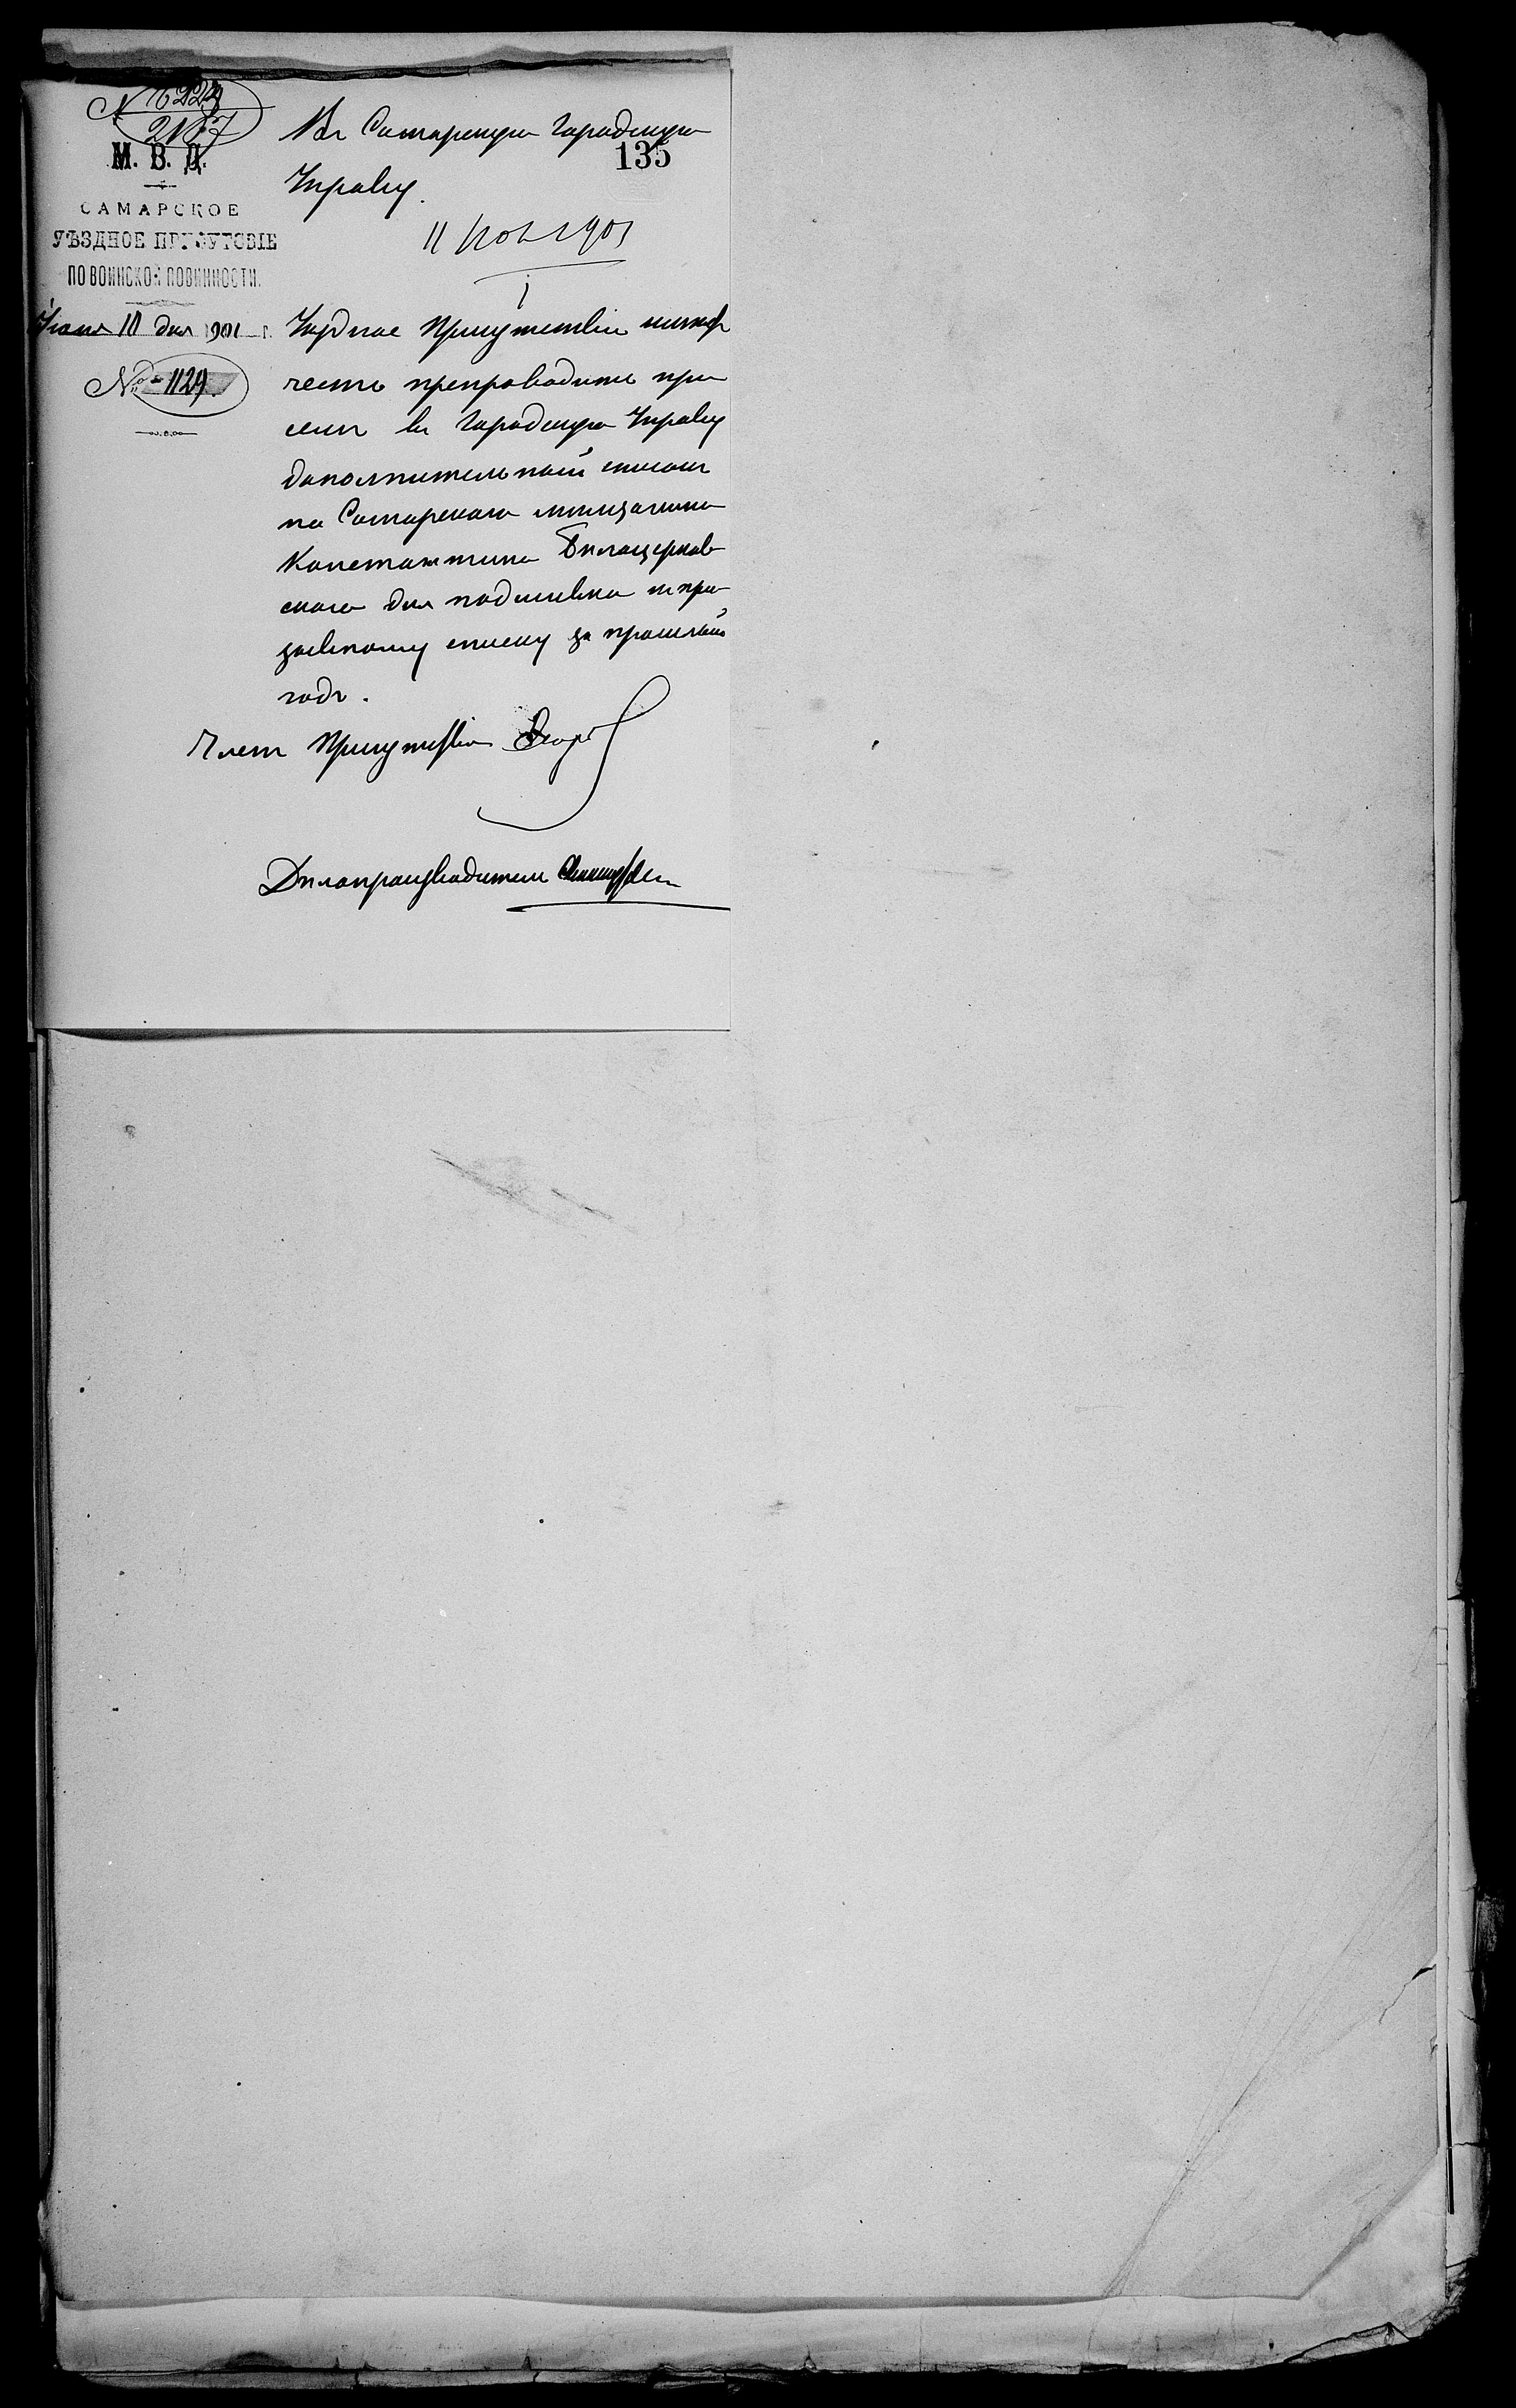 № 6224
2187
М. В. Д.
САМАРСКОЕ
УѢЗДНОЕ ПРИСУТСВІЕ
ПО ВОИНСКОЙ ПОВИННОСТИ.
Іюня 10 дня 1901 г.
№ 1129.
135
Въ Самарскую Городскую
Управу.
11 1901
Уѣздное Присутствіе имѣетъ
честь препроводить при
семъ въ Городскую Управу
дополнительный списокъ
на Самарскаго мѣщанина
Константина Бѣлоцерков-
скаго для подшивки къ при-
зывному списку за прошлый
годъ.
Членъ Присутствія
Дѣлопроизводитель